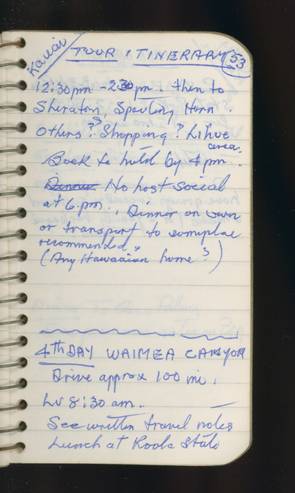 Kauai
TOUR ITINERARY 53
12:30pm - 2:30pm. then to
Sheraton, Spouting Horn.
others?? Shopping? Lihue
area.
Back to hotel by 4 pm.
Dinner No host social
at 6 pm., Dinner on own
or transport to someplace
recommended.
(Any Hawaiian home?)
4th DAY WAIMEA CANYON
Drive approx 100 mi.
Lv 8:30 am.
See written travel notes
Lunch at State